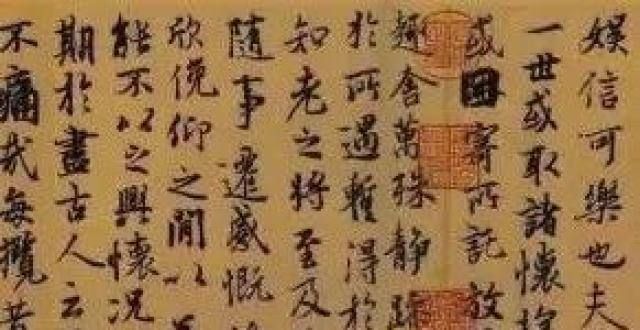 娛信可樂也夫
一世或取諸懷
或因寄所託放
趣舍萬殊静
於所遇暫得於
知老之將至及
隨事遷感慨
欣俛仰之閒以
能不以之興懷況
期於盡古人云
不痛哉每攬昔